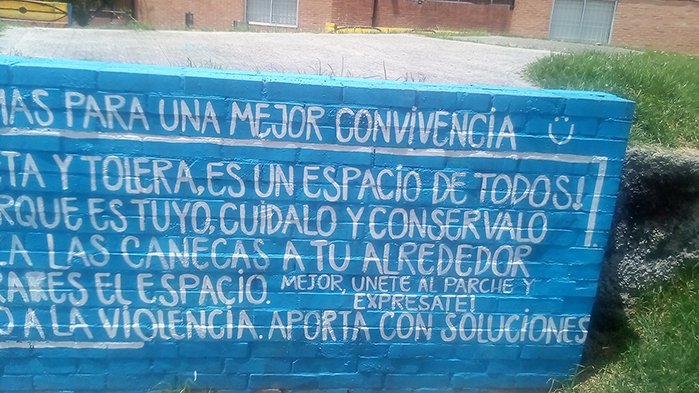 MAS PARA UNA MEJOR CONVIVENCÍA
TA Y TOLERA, ES UN ESPACIO DE TODOS!
RQUE ES TUYO, CUÍDALO Y CONSERVALO
LA LAS CANECAS A TU ALREDEDOR
RAYES EL ESPACIO. MEJOR, UNETE AL PARCHE Y
EXPRESATE!
O A LA VIOLENCIA. APORTA CON SOLUCIONES